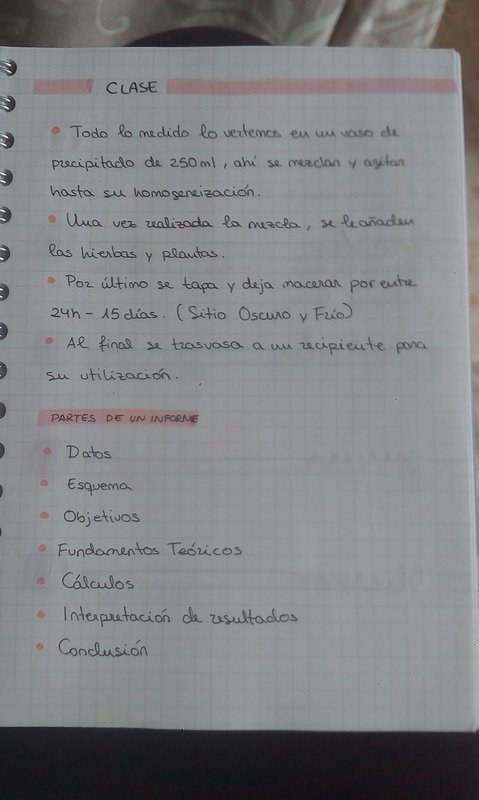 CLASE
• Todo lo medido lo vertemos en un vaso de
precipitado de 250ml, ahí se mezclan y agitan
hasta su homogeneización.
• Una vez realizada la mezcla, se le añaden
las hierbas y plantas.
• Por último se tapa y deja macerar por entre
24h - 15 días. (Sitio Oscuro y Frío)
• Al final se trasvasa a un recipiente para
su utilización.
PARTES DE UN INFORME
• Datos
• Esquema
• Objetivos
• Fundamentos Teóricos
• Cálculos
• Interpretación de resultados
• Conclusión